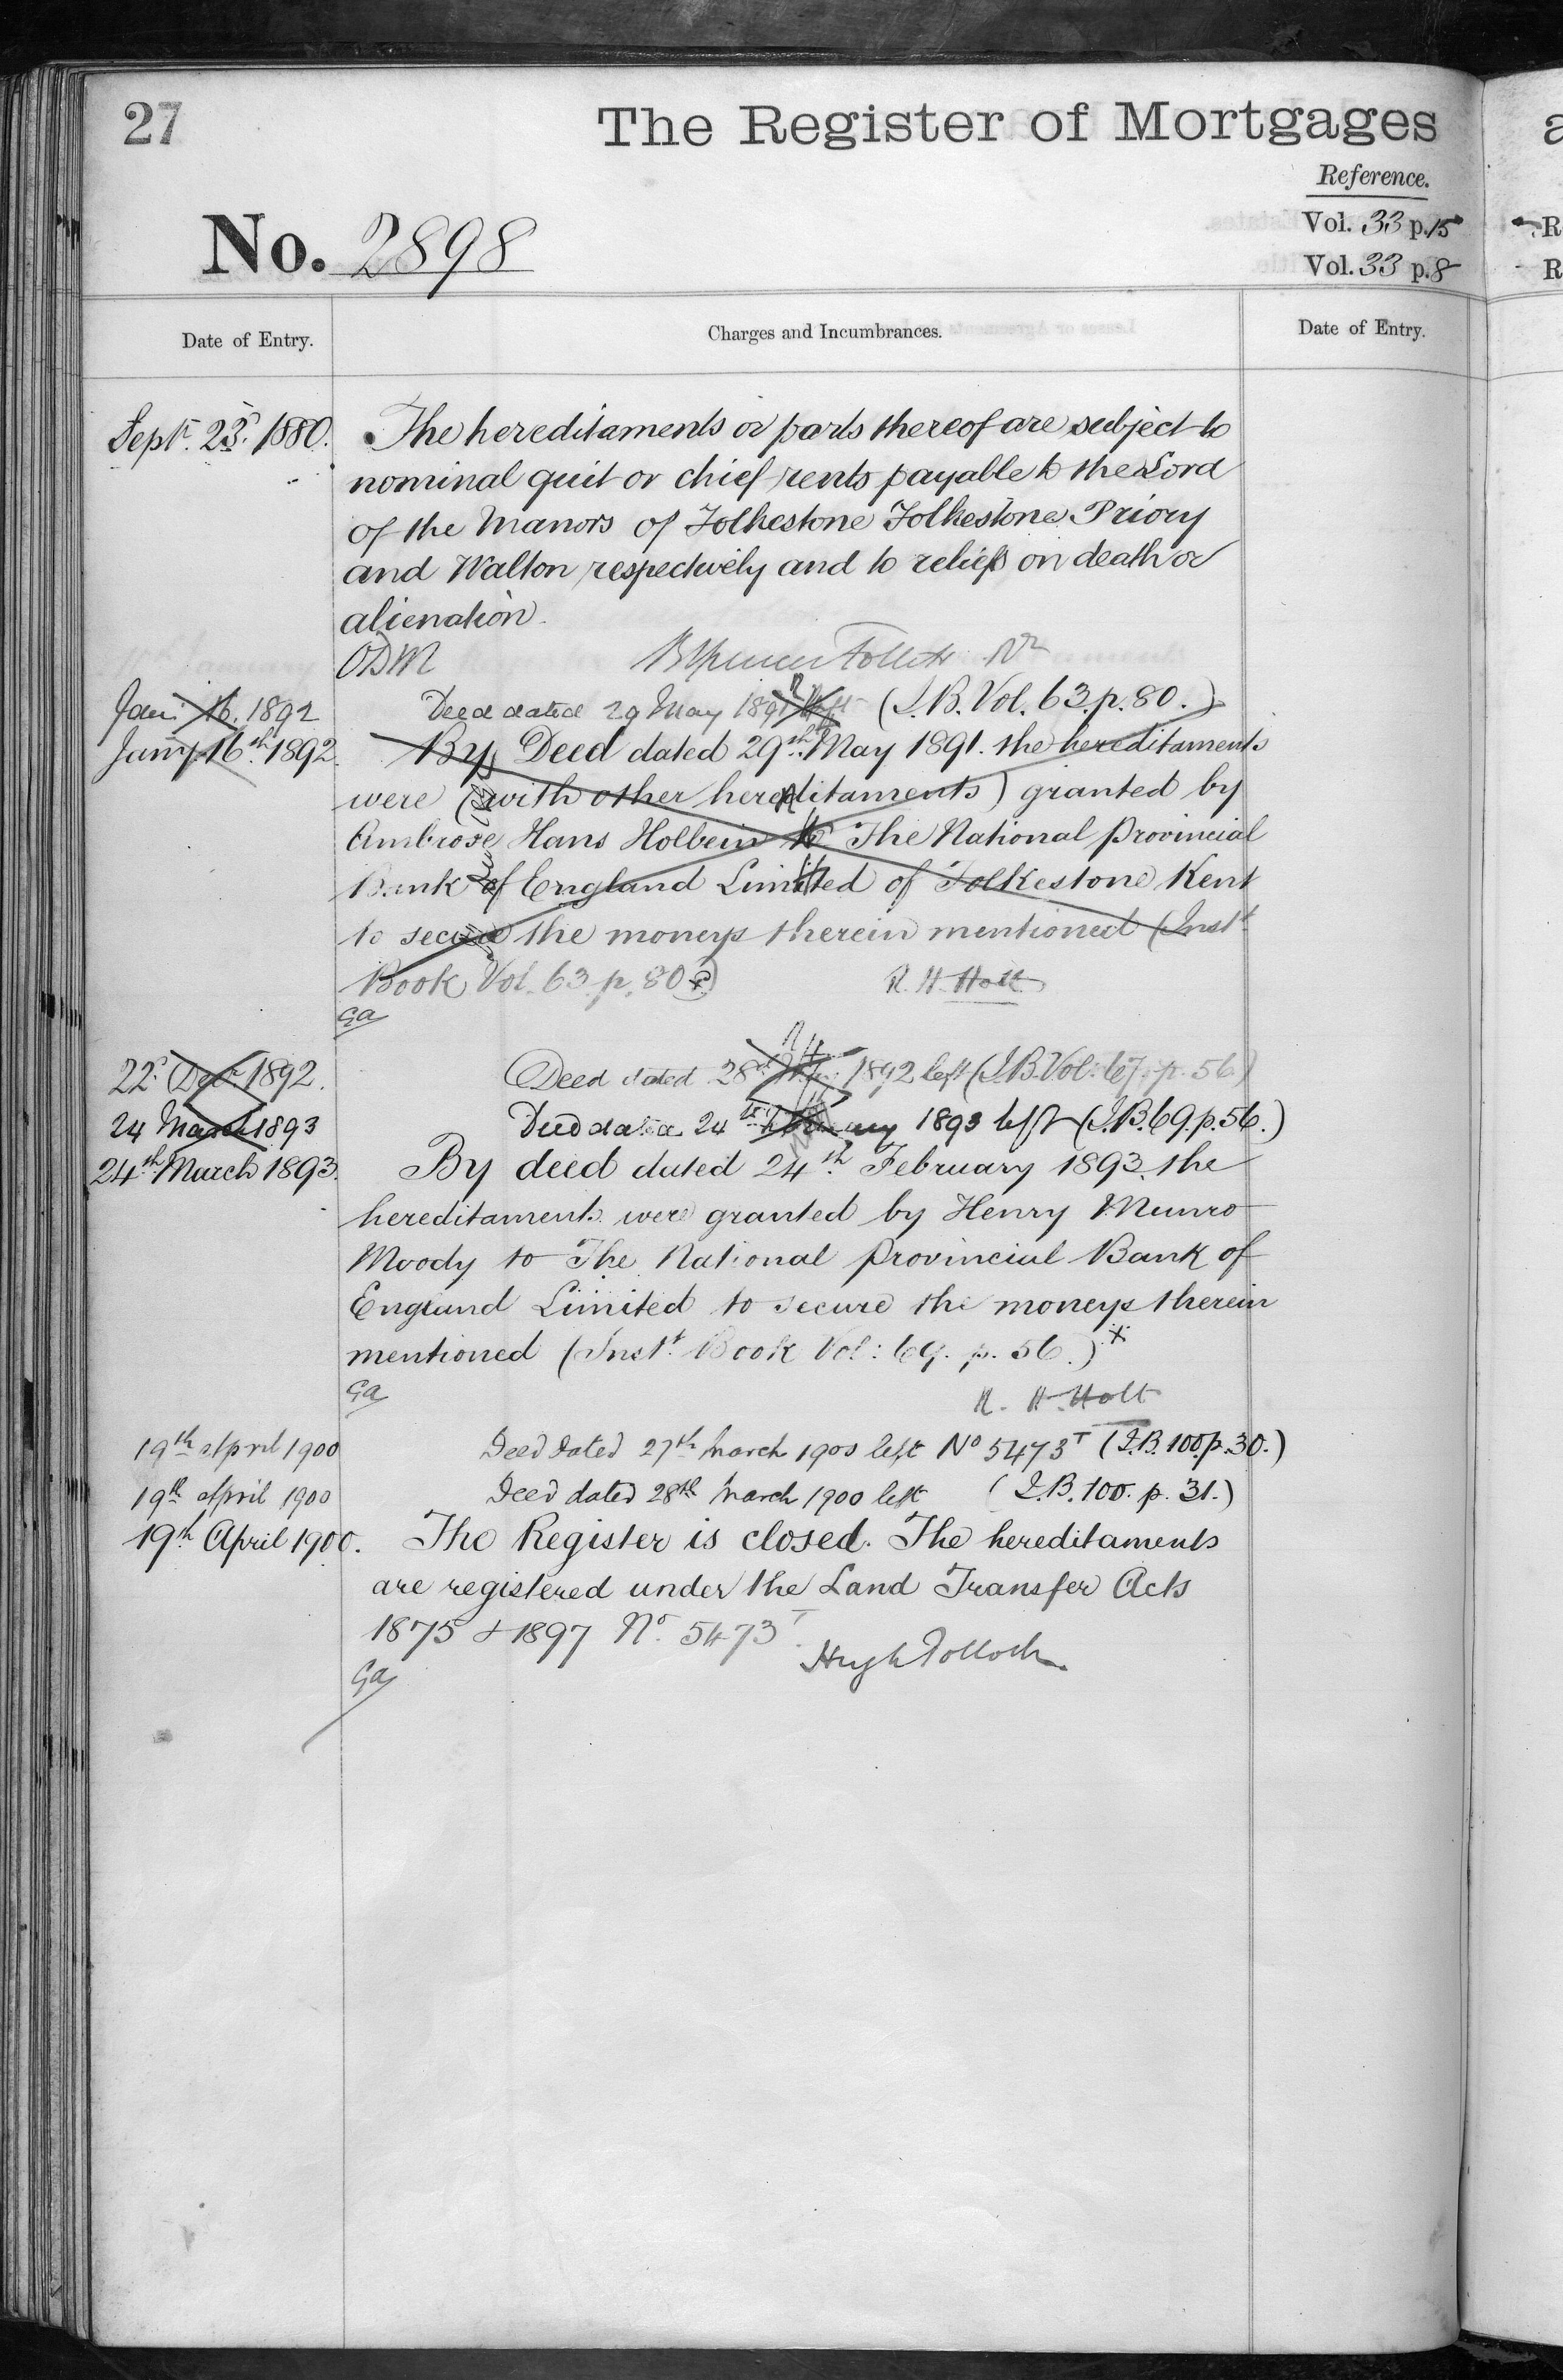 27
The Register of Mortgages
Reference.
No. 2898
Vol. 33 p. 15
Vol. 33 p. 8
Date of Entry.
Charges and Incumbrances.
Date of Entry.
Sept. 23. 1880. The hereditaments or parts thereof are subject to
nominal quit or chief rents payable to the Lord
of the Manors of Folkestone Folkestone Priory
and Walton respectively and to reliefs on death or
alienation.
ODM
Jan. 16. 1892 Deed dated 29 May 1891 left (I.B. Vol. 63. p. 80.)
Jany. 16th. 1892. By Deed dated 29th. May 1891. the hereditaments
were (with other hereditaments) granted by
Ambrose Hans Holbein to The National Provincial
Bank of England Limited of Folkestone Kent
to secure the moneys therein mentioned (Instt
Book Vol. 63. p. 80.)
R. H. Holt
Ga
22d. Decr. 1892. Deed dated 28th 1892 left (I.B. Vol: 67. p. 56)
24 March 1893 Deed dated 24th February 1893 left (I.B. 69. p. 56.)
24th. March 1893. By deed dated 24th. February 1893. the
hereditaments were granted by Henry Munro
Moody to The National Provincial Bank of
England Limited to secure the moneys therein
mentioned (Instt. Book Vol: 69. p. 56.) x
Ga
R. H. Holt
19th April 1900 Deed dated 27th March 1900 left No 5473T (I.B. 100. p. 30.)
19th April 1900 Deed dated 28th March 1900 left (I.B. 100. p. 31.)
19th April 1900. The Register is closed. The hereditaments
are registered under the Land Transfer Acts
1875 & 1897 No. 5473T.
Hugh Pollock
Ga
a
R
R